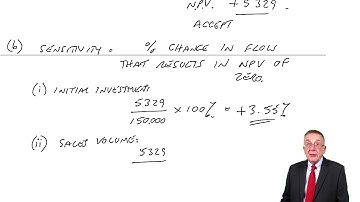 N.P.V. + 5329.
ACCEPT
(b) SENSITIVITY = % CHANGE IN FLOW
THAT RESULTS IN NPV OF
ZERO.
(i) INITIAL INVESTMENT:
5329
150,000
× 100% = +3.55%
(ii) SALES VOLUME:
5329